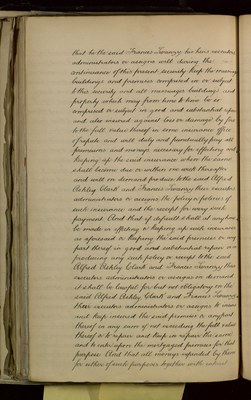 that he the said Francis Tovarez his heirs executors
administrators or assigns will during the
continuance of this present security keep the messuages
buildings and premises comprised in or subject
to this security and all messuages buildings and
property which may from time to time be so
comprised or subject in good and substantial repair
and also insured against loss or damage by fire
to the full value thereof in some insurance office
of repute and will duly and punctually pay all
premiums and moneys necessary for effecting and
keeping up the said insurance when the same
shall become due or within one week thereafter
and will on demand produce to the said Alfred
Ashley Clark and Francis their executors
administrators or assigns the policy or policies of
such insurance and the receipt for every such
payment And that if default shall at any time
be made in effecting or keeping up such insurance
as aforesaid or keeping the said premises or any
part thereof in good and substantial repair or in
producing any such policy or receipt to the said
Alfred Ashley Clark and Francis their
executors administrators or assigns on demand
it shall be lawful for but not obligatory on the
said Alfred Ashley Clark and Francis
their executors administrators or assigns to insure
and keep insured the said premises or any part
thereof in any sum of not exceeding the full value
thereof or to repair and keep in repair the same
and to enter upon the mortgaged premises for that
purpose And that all moneys expended by them
for either of such purposes together with interest